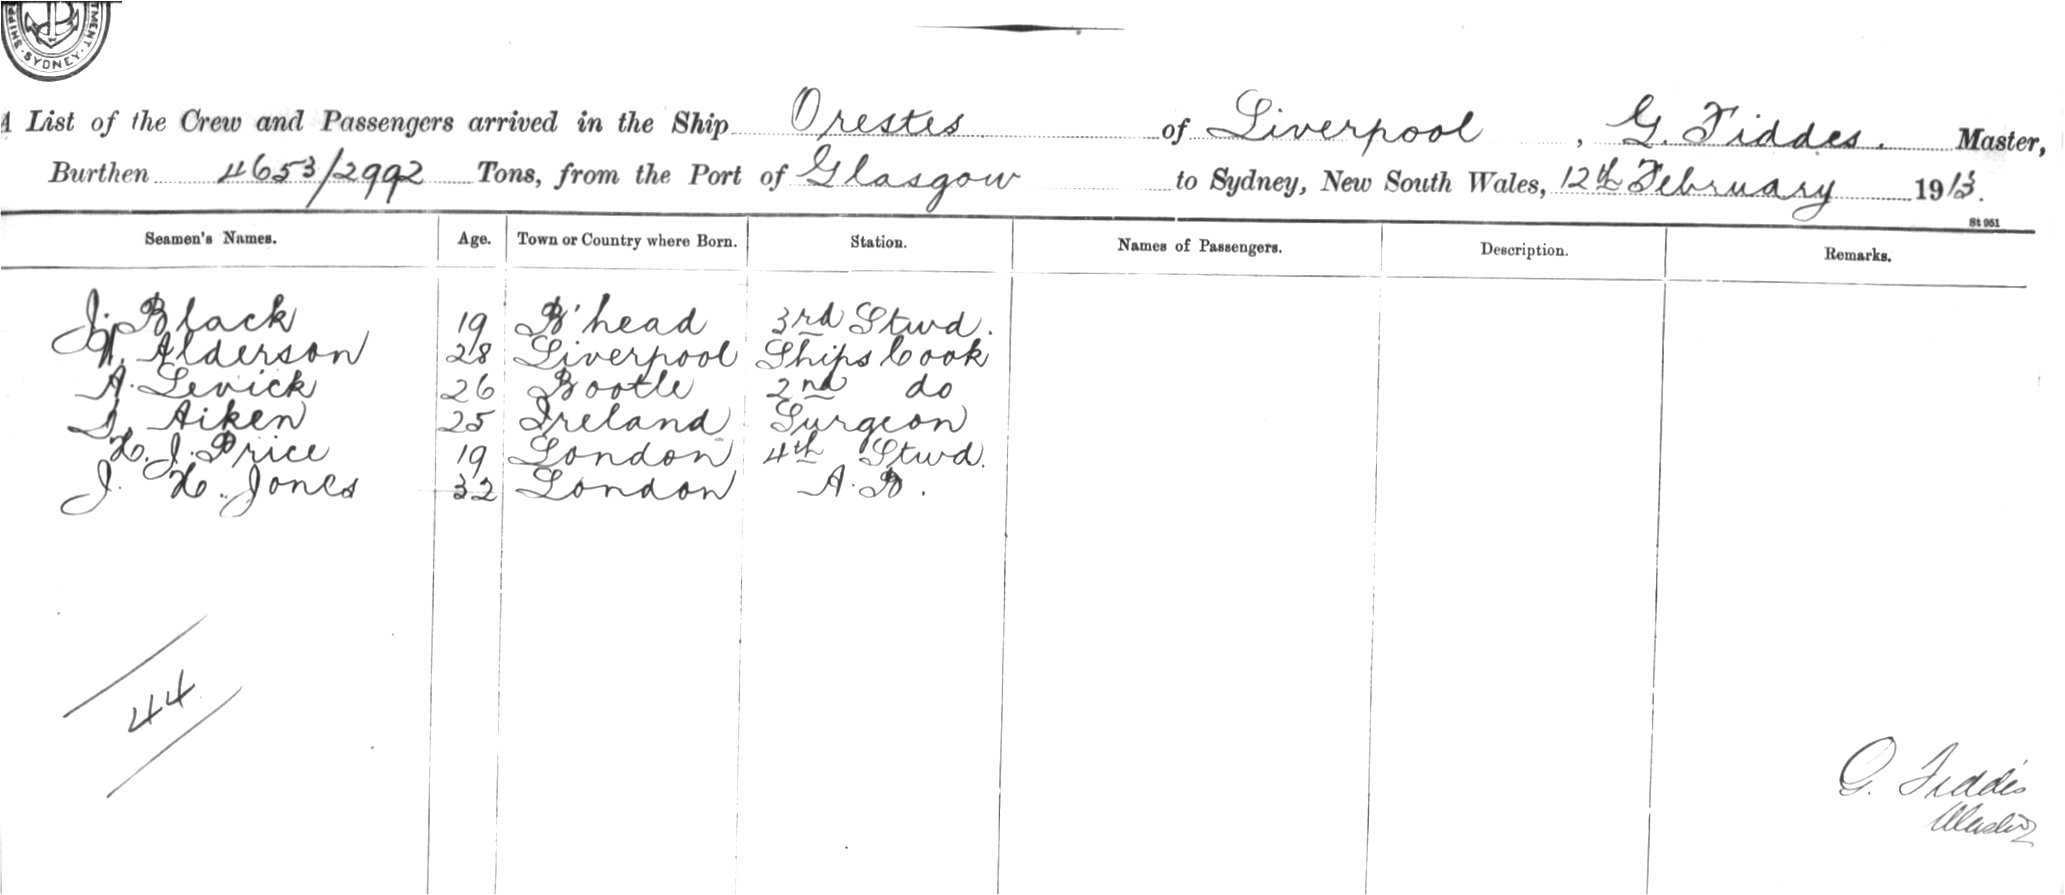 SHIPP TMENT · SYDNEY ·
A List of the Crew and Passengers arrived in the Ship Orestes of Liverpool, G. Fiddes. Master,
Burthen 4653/2992 Tons, from the Port of Glasgow to Sydney, New South Wales, 12th February 1913.
St 951
Seamen's Names. Age. Town or Country where Born. Station. Names of Passengers. Description. Remarks.
J. Black 19 B'head 3rd Stwd.
W. Alderson 28 Liverpool Ships Cook
A. Levick 26 Bootle 2nd do
Aiken 25 Ireland Surgeon
H. J. Price 19 London 4th Stwd.
J. H. Jones 32 London A.B.
44
G. Fiddes
Master